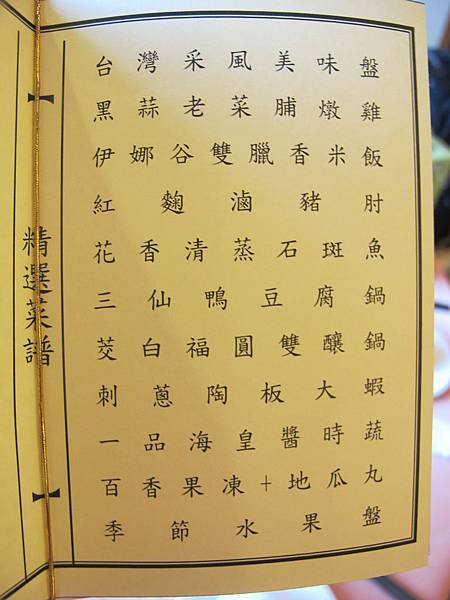 精選菜譜
台灣采風美味盤
黑蒜老菜脯燉雞
伊娜谷雙臘香米飯
紅麴滷豬肘
花香清蒸石斑魚
三仙鴨豆腐鍋
茭白福圓雙釀鍋
刺蔥陶板大蝦
一品海皇醬時蔬
百香果凍+地瓜丸
季節水果盤